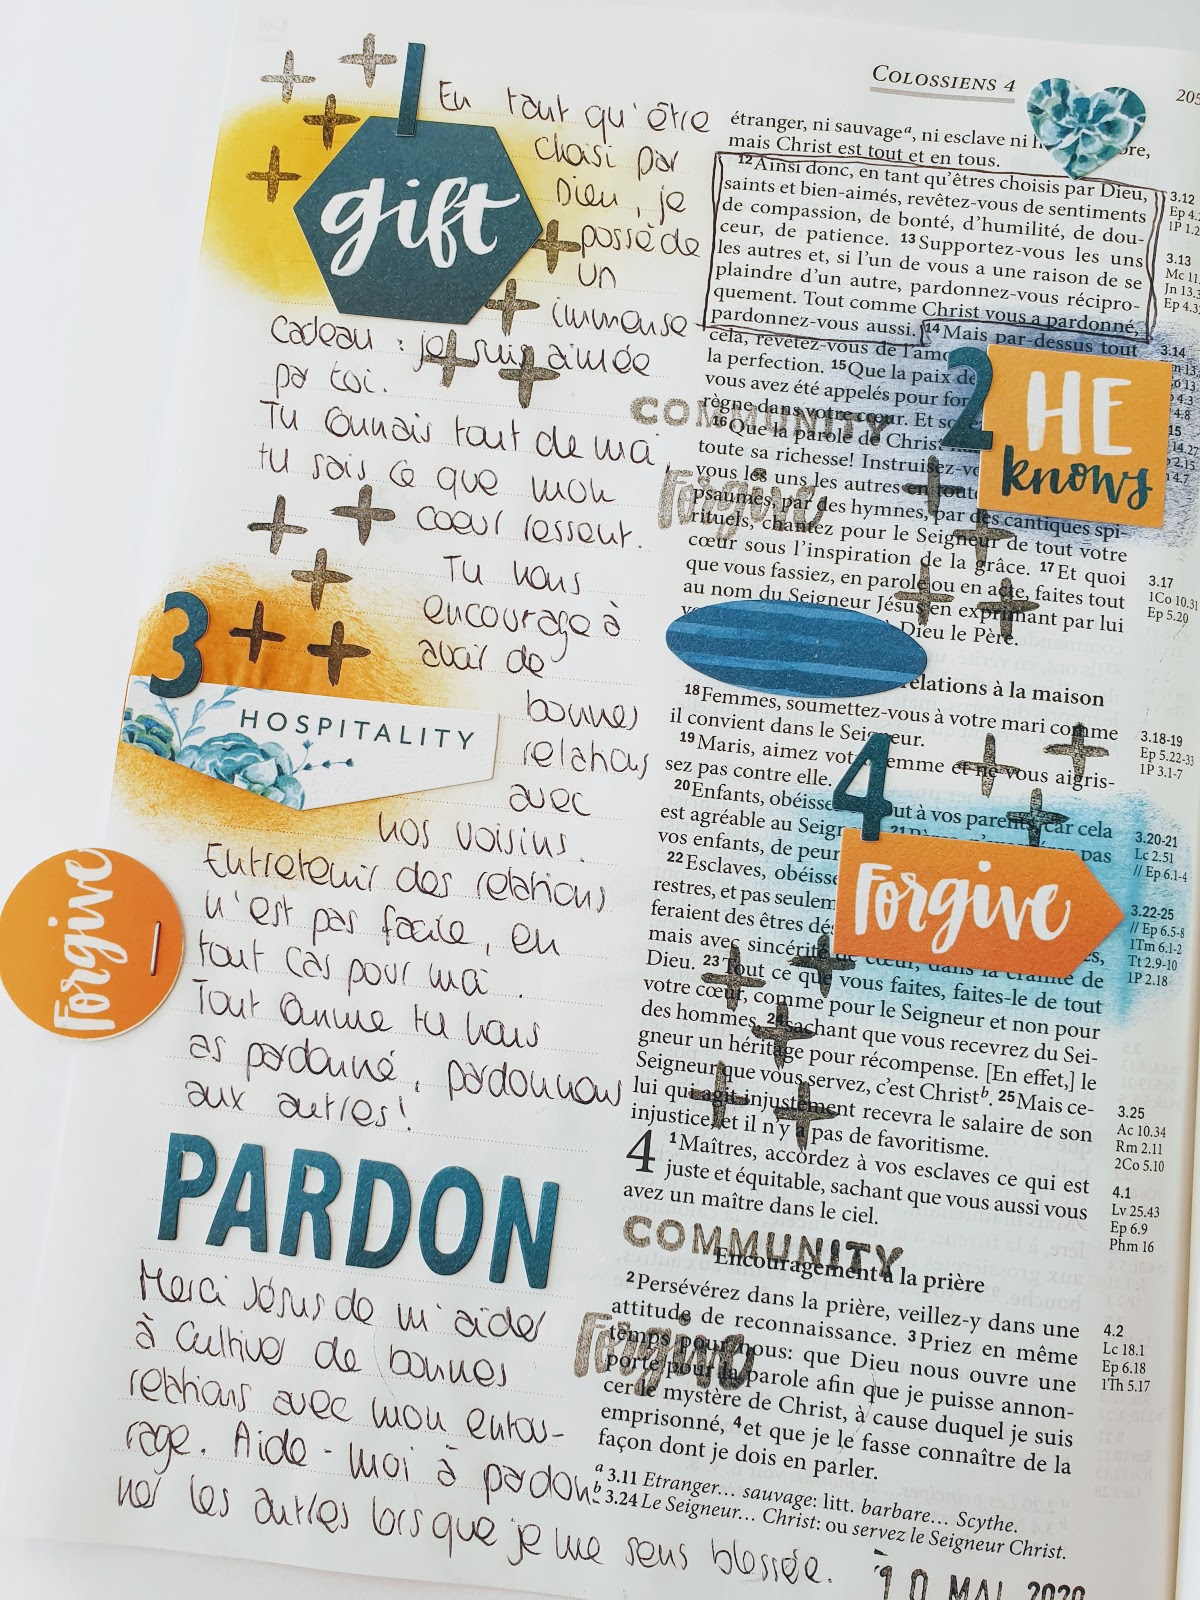 COLOSSIENS 4
205
1
gift
En tant qu'être
choisi par
Dieu, je
possède
un
immense
cadeau : je suis aimée
par toi.
Tu connais tout de moi,
tu sais ce que mon
coeur ressent.
Tu nous
encourage à
avoir de
bonnes
relations
avec
nos voisins.
3
HOSPITALITY
Forgive
Entretenir des relations
n'est pas facile, en
tout cas pour moi.
Tout comme tu nous
as pardonné, pardonnons
aux autres!
PARDON
Merci Jésus de m'aider
à cultiver de bonnes
relations avec mon entou-
rage. Aide-moi à pardon-
ner les autres lorsque je me sens blessée.
étranger, ni sauvagea, ni esclave ni
mais Christ est tout et en tous.
12Ainsi donc, en tant qu'êtres choisis par Dieu,
saints et bien-aimés, revêtez-vous de sentiments
de compassion, de bonté, d'humilité, de dou-
ceur, de patience. 13Supportez-vous les uns
les autres et, si l'un de vous a une raison de se
plaindre d'un autre, pardonnez-vous récipro-
quement. Tout comme Christ vous a pardonné,
pardonnez-vous aussi. 14Mais par-dessus tout
cela, revêtez-vous de l'amo
la perfection. 15Que la paix de
vous avez été appelés pour for
règne dans votre cœur. Et so
16Que la parole de Christ
toute sa richesse! Instruisez-vo
vous les uns les autres en toute
psaumes, par des hymnes, par des cantiques spi-
rituels, chantez pour le Seigneur de tout votre
cœur sous l'inspiration de la grâce. 17Et quoi
que vous fassiez, en parole ou en acte, faites tout
au nom du Seigneur Jésus en exprimant par lui
Dieu le Père.
2
HE
knows
COMMUNITY
Forgive
relations à la maison
18Femmes, soumettez-vous à votre mari comme
il convient dans le Seigneur.
19Maris, aimez votre femme et ne vous aigris-
sez pas contre elle.
20Enfants, obéisse out à vos parents, car cela
est agréable au Seign pas
vos enfants, de peur
22Esclaves, obéisse
restres, et pas seulem
feraient des êtres dés
mais avec sincérité de cœur, dans la crainte de
Dieu. 23Tout ce que vous faites, faites-le de tout
votre cœur, comme pour le Seigneur et non pour
des hommes, 24sachant que vous recevrez du Sei-
gneur un héritage pour récompense. [En effet,] le
Seigneur que vous servez, c'est Christb. 25Mais ce-
lui qui agit injustement recevra le salaire de son
injustice, et il n'y a pas de favoritisme.
4
Forgive
4 1Maîtres, accordez à vos esclaves ce qui est
juste et équitable, sachant que vous aussi vous
avez un maître dans le ciel.
COMMUNITY
Encouragement à la prière
2Persévérez dans la prière, veillez-y dans une
attitude de reconnaissance. 3Priez en même
temps pour nous: que Dieu nous ouvre une
porte pour la parole afin que je puisse annon-
cer le mystère de Christ, à cause duquel je suis
emprisonné, 4et que je le fasse connaître de la
façon dont je dois en parler.
Forgive
a 3.11 Etranger... sauvage: litt. barbare... Scythe.
b 3.24 Le Seigneur... Christ: ou servez le Seigneur Christ.
10 MAI 2020
3.12
Ep 4.
1P 1.2
3.13
Mc 11
Jn 13.3
Ep 4.3
3.14
3.17
1Co 10.31
Ep 5.20
3.18-19
Ep 5.22-33
1P 3.1-7
3.20-21
Lc 2.51
// Ep 6.1-4
3.22-25
// Ep 6.5-8
1Tm 6.1-2
Tt 2.9-10
1P 2.18
3.25
Ac 10.34
Rm 2.11
2Co 5.10
4.1
Lv 25.43
Ep 6.9
Phm 16
4.2
Lc 18.1
Ep 6.18
1Th 5.17